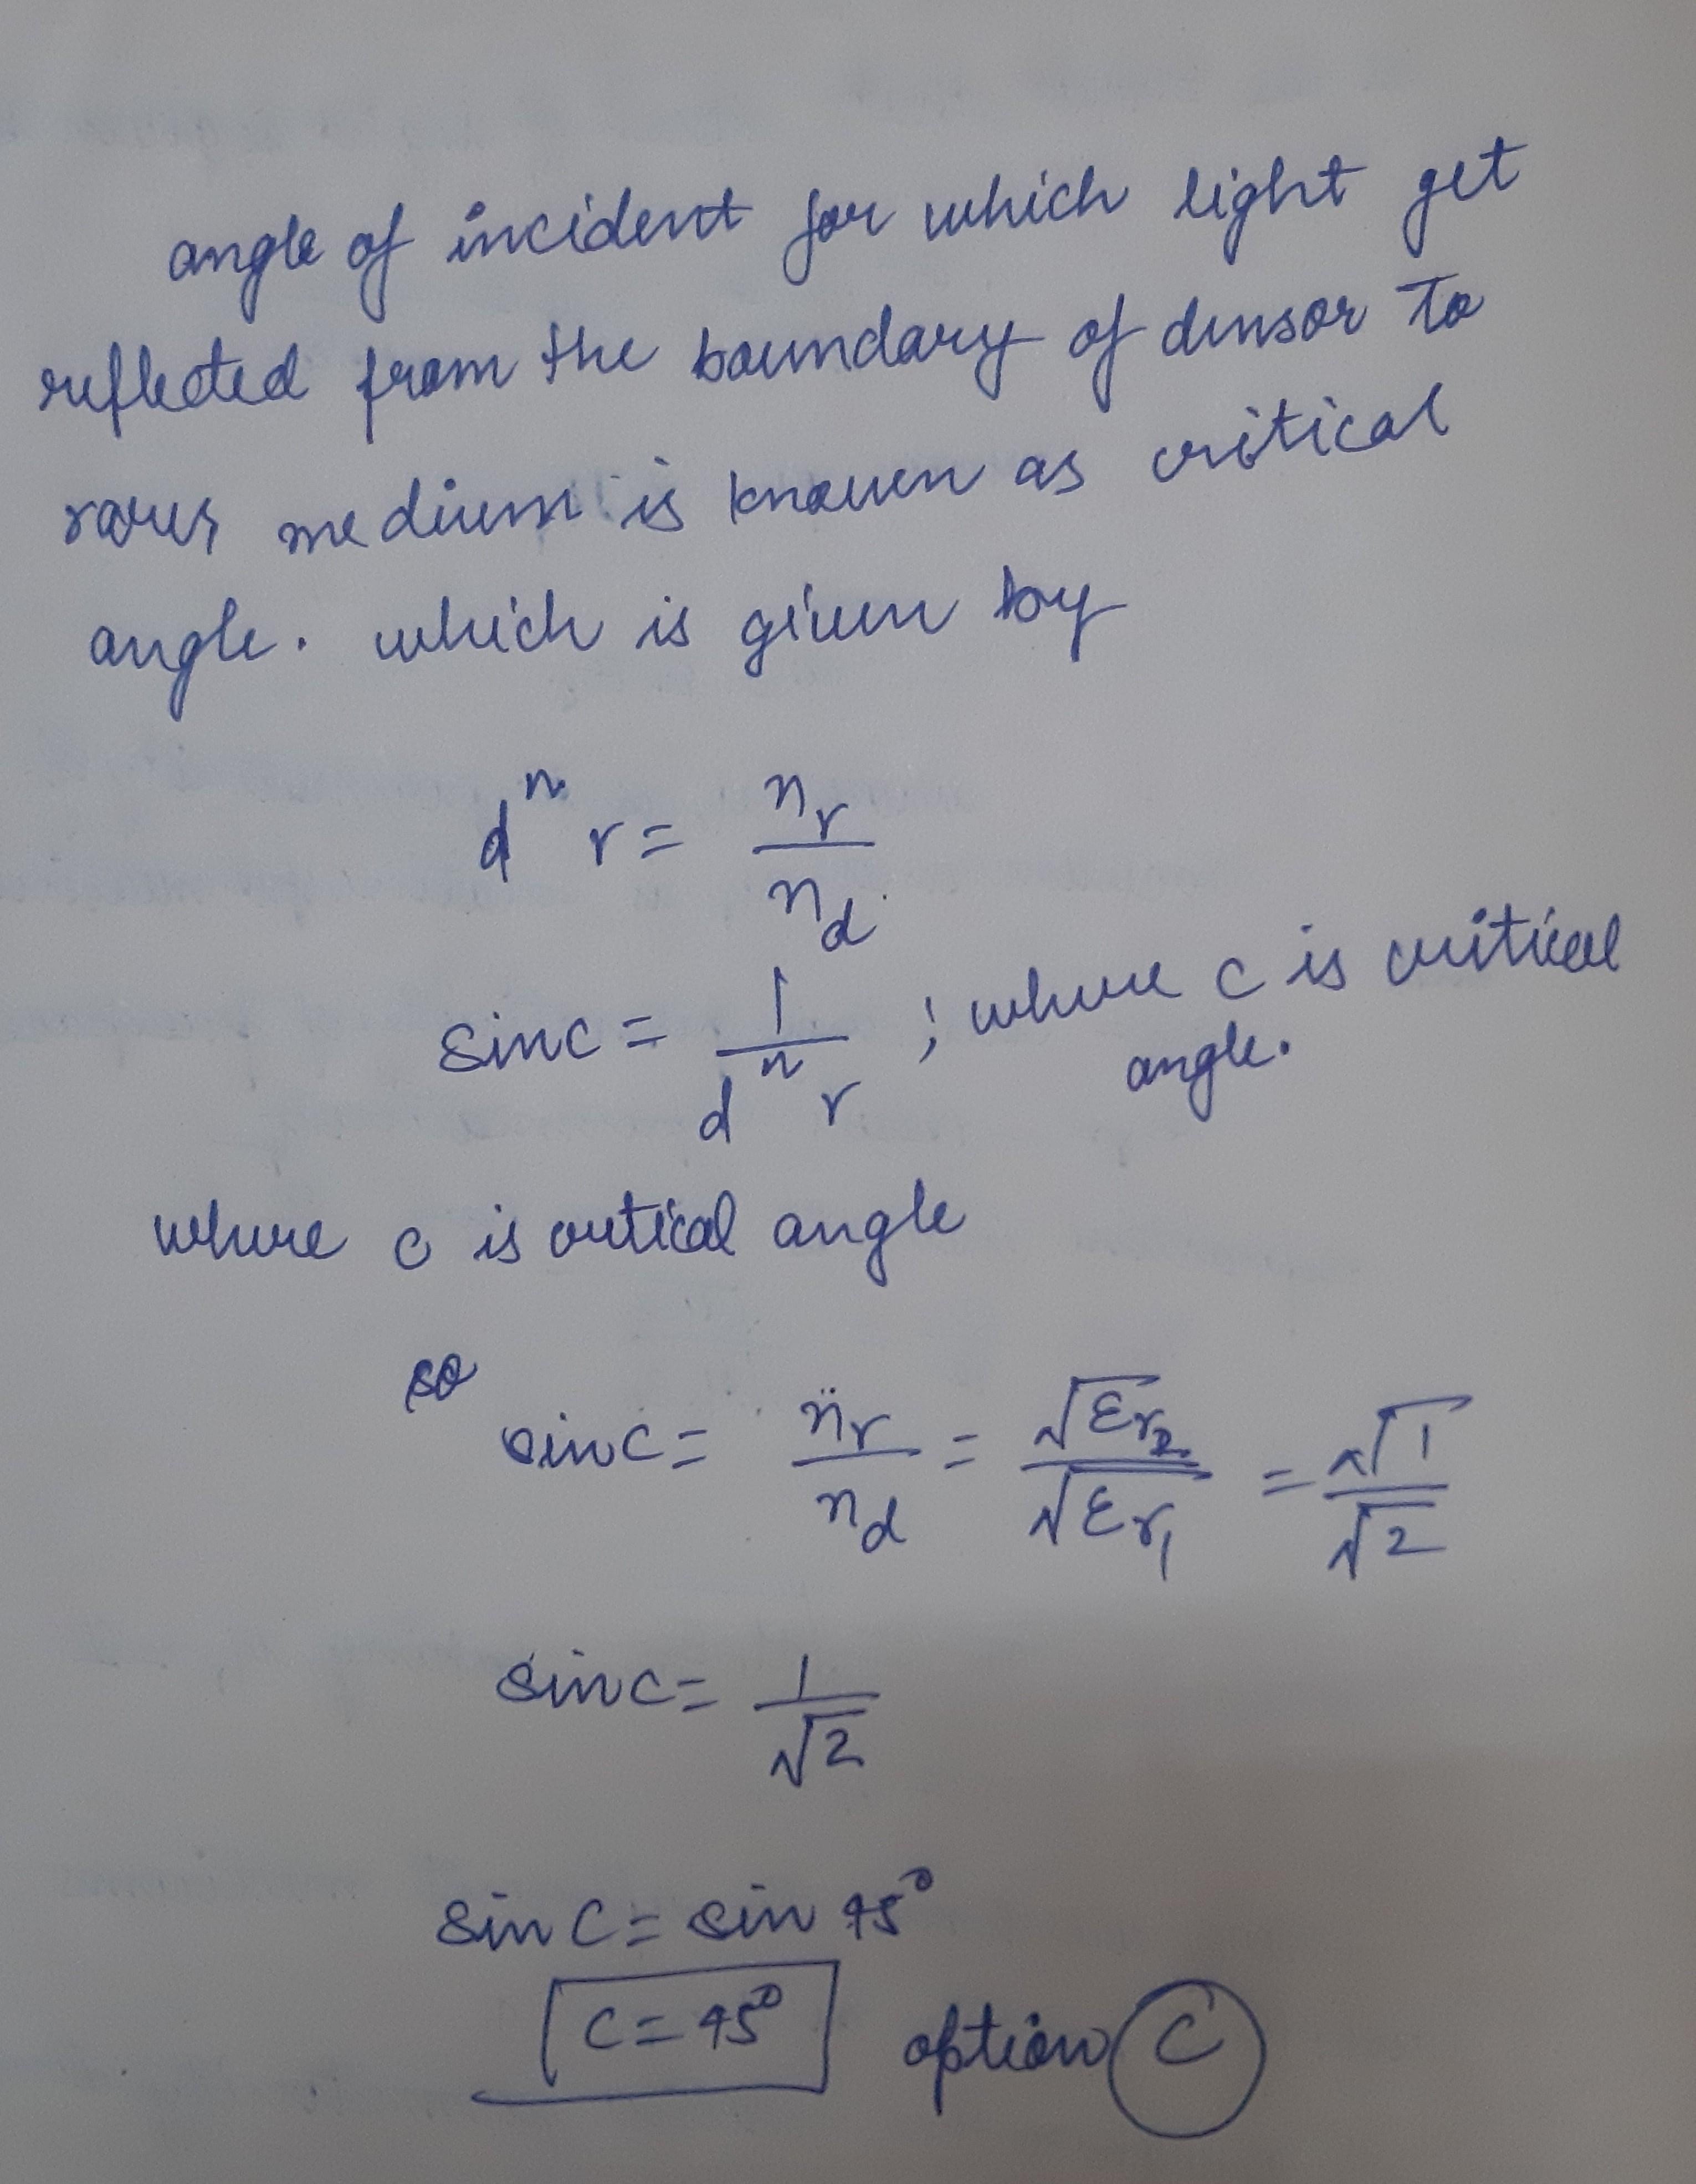 angle of incident for which light get
reflected from the boundary of densor to
rarer medium is known as critical
angle. which is given by
d^n r = n_r / n_d
sinc = 1 / d^n r ; where c is critical
angle.
where c is critical angle
so
sinc = n_r / n_d = √ε_r2 / √ε_r1 = √1 / √2
sinc = 1 / √2
sin C = sin 45°
C = 45° option C